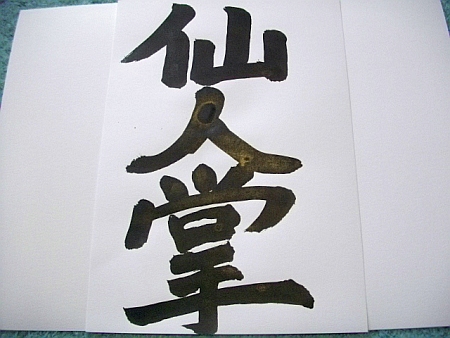 仙人掌